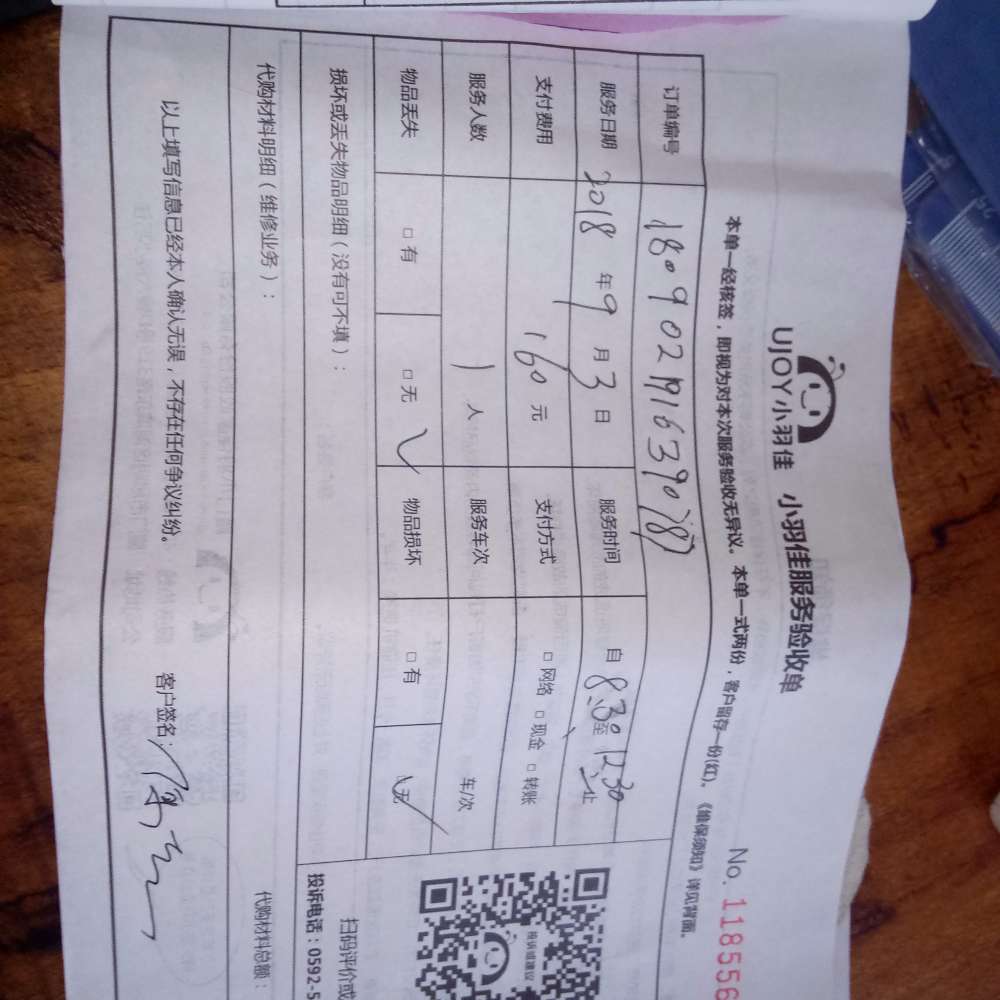 UJOY小羽佳 小羽佳服务验收单
No.118556
本单一经核签，即视为对本次服务验收无异议。本单一式两份，客户留存一份(红)。《维保须知》详见背面。
订单编号 180902191639078
服务日期 2018年9月3日 服务时间 自8:30至12:30止
支付费用 160元 支付方式 □网络 □现金 □转账
服务人数 1人 服务车次 车/次
物品丢失 □有 □无 ✓ 物品损坏 □有 □无 ✓
损坏或丢失物品明细（没有可不填）：
投诉或建议
扫码评价或
投诉电话：0592-5
代购材料明细（维修业务）： 代购材料总额：
以上填写信息已经本人确认无误，不存在任何争议纠纷。 客户签名：